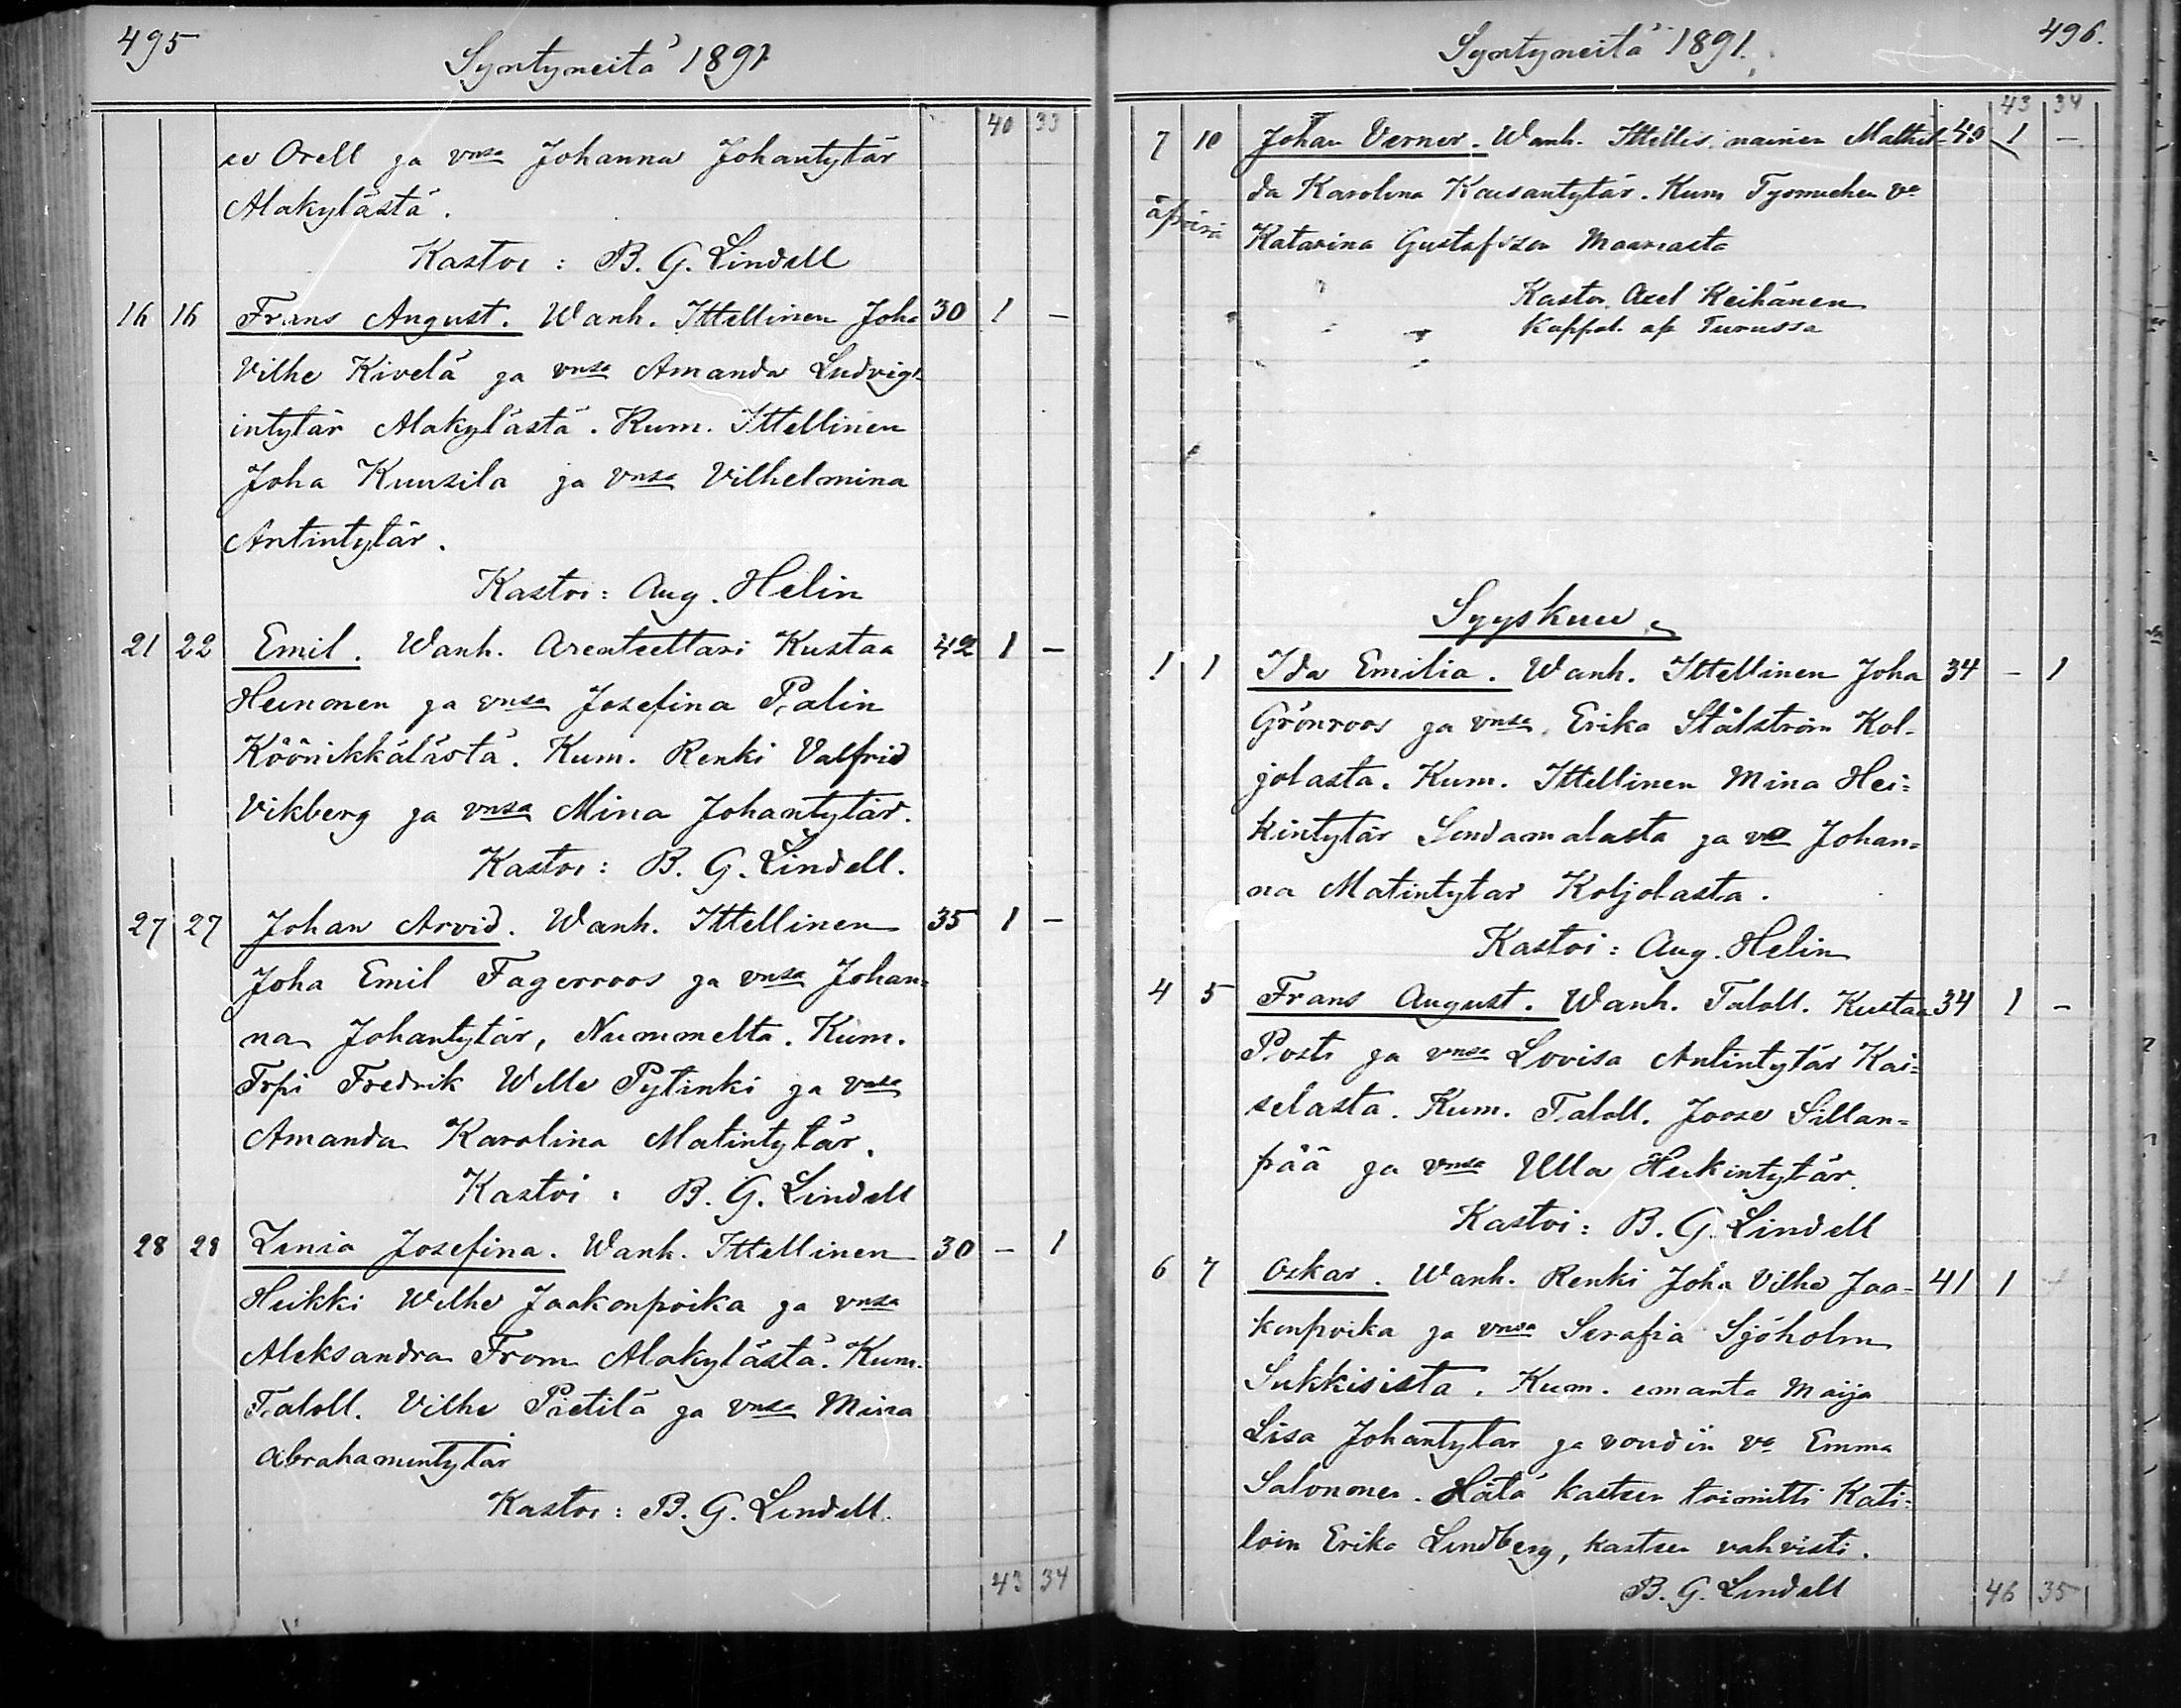 495
Syntyneitä 1891
40 33
se Orell ja vnsa Johanna Johantytär
Alakylästä.
Kastoi: B. G. Lindell
16 16 Frans August. Wanh. Ittellinen Joha 30 1 -
Vilhe Kivelä ja vnsa Amanda Ludvig-
intytär Alakylästä. Kum. Ittellinen
Joha Kuusila ja vnsa Vilhelmina
Antintytär.
Kastoi: Aug. Helin
21 22 Emil. Wanh. Arenteettari Kustaa 42 1 -
Heinonen ja vnsa Josefina Palin
Köönikkälästä. Kum. Renki Valfrid
Vikberg ja vnsa Mina Johantytär.
Kastoi: B. G. Lindell.
27 27 Johan Arvid. Wanh. Ittellinen 35 1 -
Joha Emil Fagerroos ja vnsa Johan=
na Johantytär, Nummelta. Kum.
Trpi Fredrik Wille Pytinki ja vnsa
Amanda Karolina Matintytär.
Kastoi: B. G. Lindell
28 28 Linia Josefina. Wanh. Ittellinen 30 - 1
Heikki Wilhe Jaakonpoika ja vnsa
Aleksandra From Alakylästä. Kum.
Taloll. Vilhe Pietilä ja vnsa Mina
Abrahamintytär
Kastoi: B. G. Lindell.
43 34
Syntyneitä 1891. 496.
43 34
7 10 Johan Verner. Wanh. Ittellis. nainen Mathil- 40 1 -
da Karolina Kausantytär. Kum Tyomiehen va
äpärä Katarina Gustafsson Maariasta
Kastoi Axel Keihänen
Kappal. ap Turussa
Syyskuu
1 1 Ida Emilia. Wanh. Ittellinen Joha 34 - 1
Grönroos ja vnsa Erika Stålström Kol-
jolasta. Kum. Ittellinen Mina Hei=
kintytär Sendamalasta ja va Johan=
na Matintytar Koljolasta.
Kastoi: Aug. Helin
4 5 Frans August. Wanh. Taloll. Kustaa 34 1 -
Posti ja vnsa Lovisa Antintytär Kai=
selasta. Kum. Taloll. Joose Sillan=
pää ja vnsa Ulla Heikintytär.
Kastoi: B. G. Lindell
6 7 Oskar. Wanh. Renki Joha Vilhe Jaa= 41 1 -
konpoika ja vnsa Serafia Sjöholm
Sukkisista. Kum. emäntä Maija
Lisa Johantytar ja voudin va Emma
Salononen. Hätä kasteen toimitti Käti=
löin Erika Lindberg, kasteen vahvisti.
B. G. Lindell
46 35